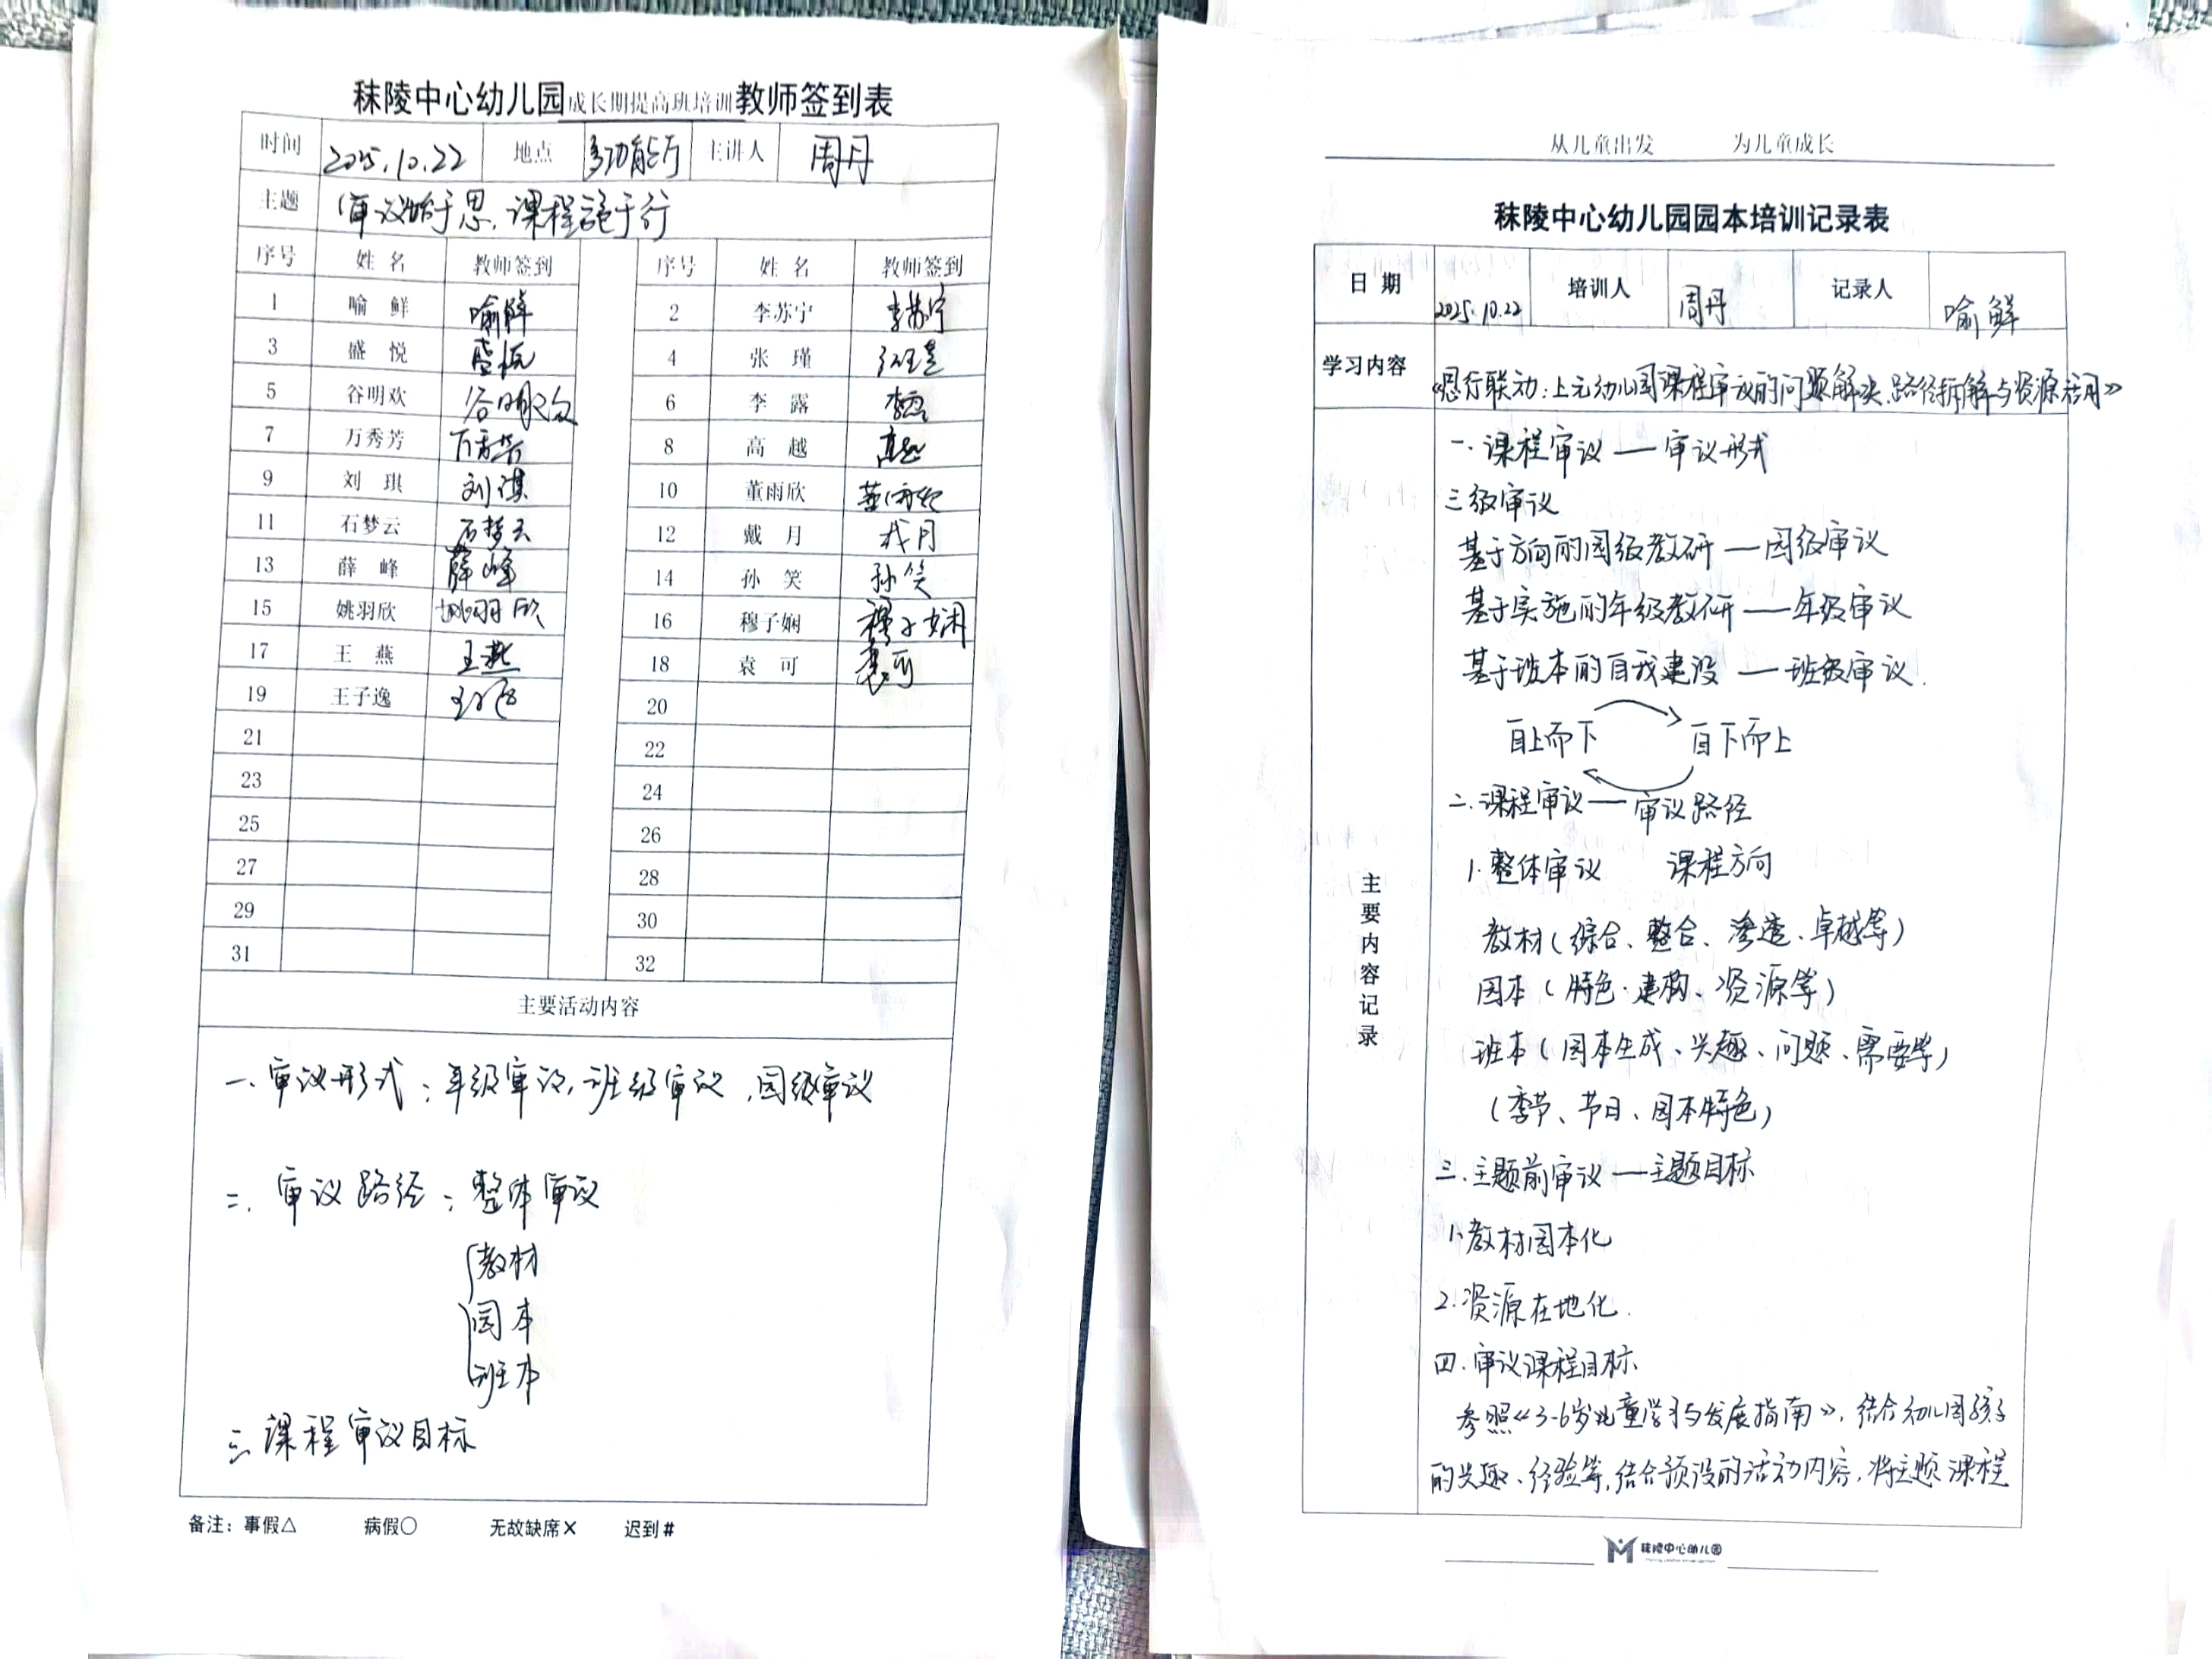 秣陵中心幼儿园成长期提高班培训教师签到表
时间 2025.10.22 地点 多功能厅 主讲人 周丹
主题 审议始于思,课程施于行
序号 姓名 教师签到 序号 姓名 教师签到
1 喻鲜 喻鲜 2 李苏宁 李苏宁
3 盛悦 盛悦 4 张瑾 张瑾
5 谷明欢 谷明欢 6 李露 李露
7 万秀芳 万秀芳 8 高越 高越
9 刘琪 刘琪 10 董雨欣 董雨欣
11 石梦云 石梦云 12 戴月 戴月
13 薛峰 薛峰 14 孙笑 孙笑
15 姚羽欣 姚羽欣 16 穆子娴 穆子娴
17 王燕 王燕 18 袁可 袁可
19 王子逸 王子逸 20
21 22
23 24
25 26
27 28
29 30
31 32
主要活动内容
一.审议形式:年级审议,班级审议,园级审议
二.审议路径:整体审议
教材
园本
班本
三.课程审议目标
备注:事假△ 病假○ 无故缺席× 迟到#
从儿童出发 为儿童成长
秣陵中心幼儿园园本培训记录表
日期 2025.10.22 培训人 周丹 记录人 喻鲜
学习内容 《思行联动:上元幼儿园课程审议的问题解决、路径拆解与资源活用》
主要内容记录
一.课程审议——审议形式
三级审议
基于方向的园级教研——园级审议
基于实施的年级教研——年级审议
基于班本的自我建设——班级审议.
自上而下 自下而上
二.课程审议——审议路径
1.整体审议 课程方向
教材(综合、整合、渗透、卓越等)
园本(特色·建构、资源等)
班本(园本生成、兴趣、问题、需要等)
(季节、节日、园本特色)
三.主题前审议——主题目标
1.教材园本化
2.资源在地化.
四.审议课程目标
参照《3-6岁儿童学习与发展指南》,结合幼儿园孩子
的兴趣、经验等,结合预设的活动内容,将主题课程
秣陵中心幼儿园